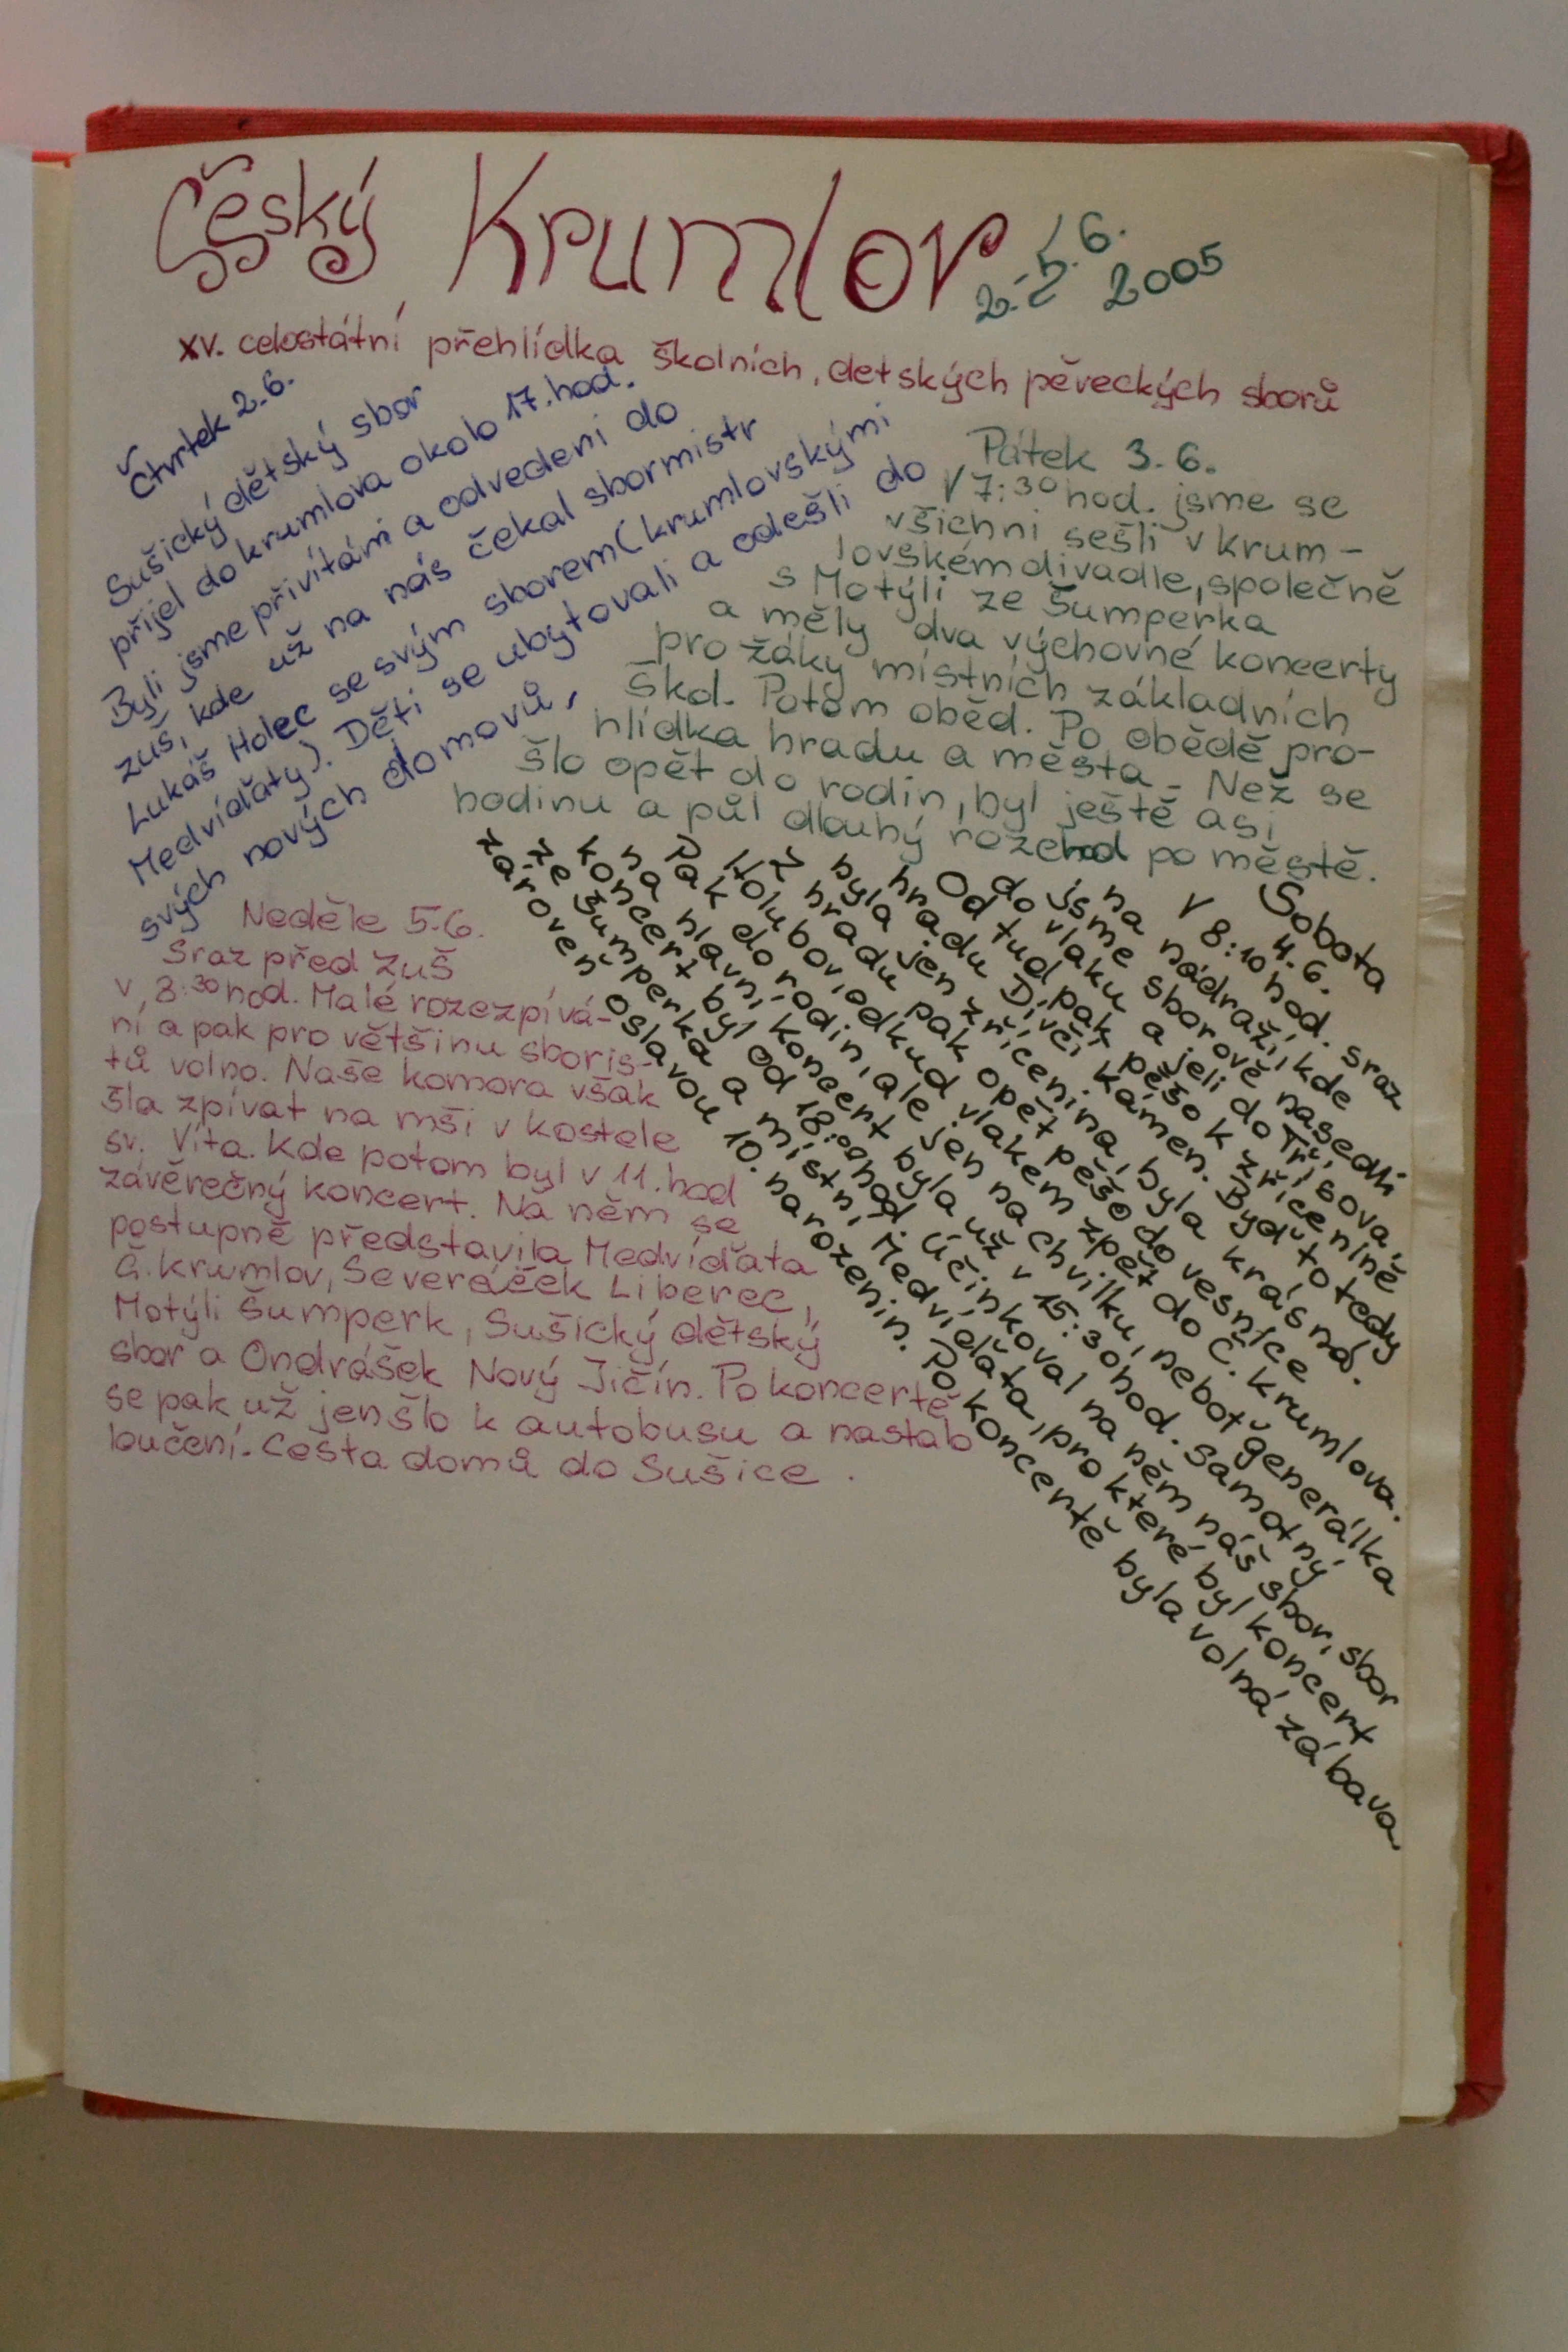 Český Krumlov 2.-5.6. 2005
XV. celostátní přehlídka školních, detských pěveckých sborů
Čtvrtek 2.6.
Sušický dětský sbor
přijel do krumlova okolo 17. hod.
Byli jsme přivítáni a odvedeni do
zuš, kde už na nás čekal sbormistr
Lukáš Holec se svým sborem (krumlovskými
Medvíďaty). Děti se ubytovali a odešli do
svých nových domovů.
Pátek 3.6.
V 7:30 hod. jsme se
všichni sešli v krum-
lovském divadle, společně
s Motýli ze Šumperka
a měly dva výchovné koncerty
pro žáky místních základních
škol. Potom oběd. Po obědě pro-
hlídka hradu a města. Než se
šlo opět do rodin, byl ještě asi
hodinu a půl dlouhý rozchod po městě.
Sobota
4.6.
V 8:10 hod. sraz
na nádraží, kde
jsme sborově nasedli
do vlaku a jeli do Třísova,
Od tud pak pěšo k zřícenině
hradu Dívčí kámen. Byď to tedy
byla jen zřícenina, byla krásná.
Z hradu pak opět pěšo do vesnice
Holubov, odkud vlakem zpět do Č. krumlova.
Pak do rodin, ale jen na chvilku, neboť generálka
na hlavní koncert byla už v 15:30 hod. samotný
koncert byl od 18:00 hod. Účinkoval na něm náš sbor, sbor
ze Šumperka a místní Medvíďata, pro které byl koncert
zároveň oslavou 10. narozenin. Po koncertě byla volná zábava
Neděle 5.6.
Sraz před ZUŠ
v 8:30 hod. Malé rozezpívá-
ní a pak pro většinu sboris-
tů volno. Naše komora však
šla zpívat na mši v kostele
sv. Víta. Kde potom byl v 11. hod
závěrečný koncert. Na něm se
postupně představila Medvíďata
Č. Krumlov, Severáček Liberec,
Motýli Šumperk, Sušický dětský
sbor a Ondrášek Nový Jičín. Po koncertě
se pak už jen šlo k autobusu a nastalo
loučení. Cesta domů do Sušice.